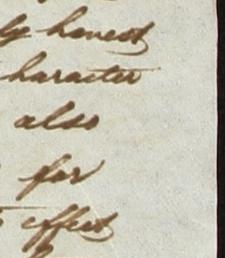 ly honest
haracter
also
for
effect